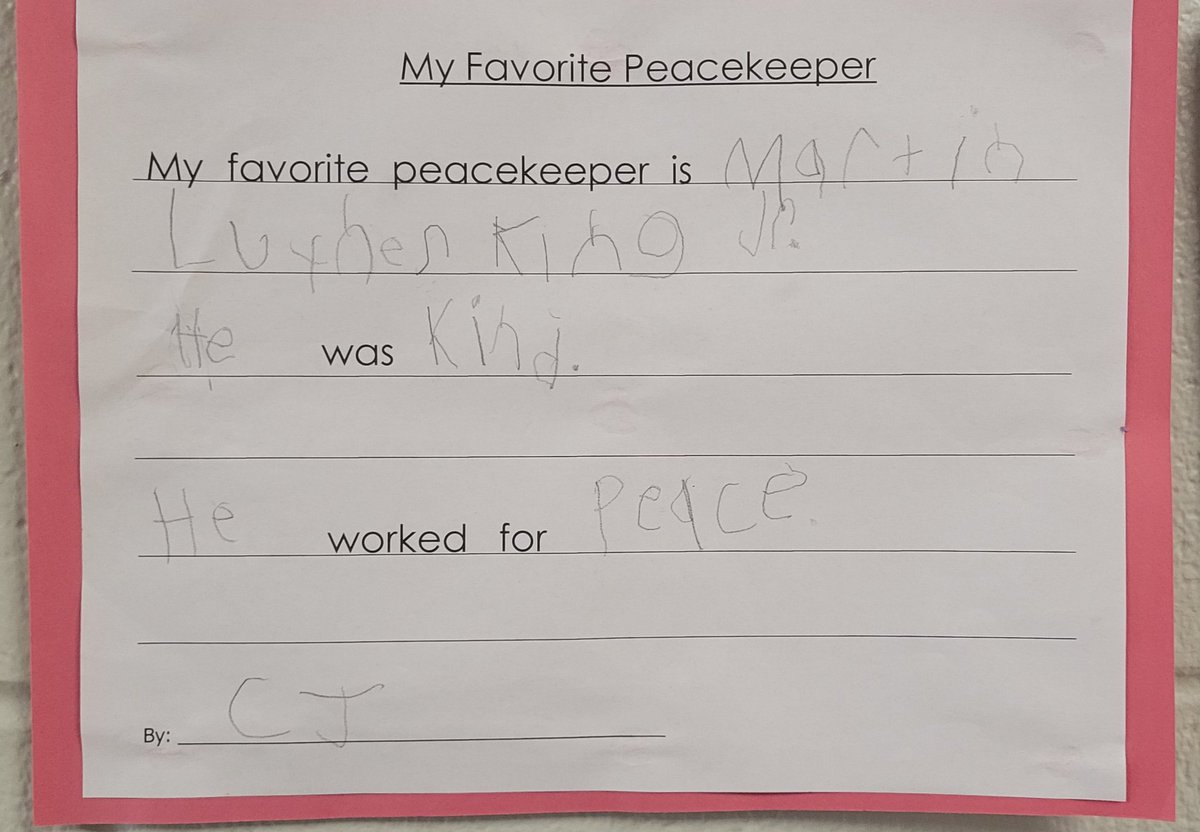 My Favorite Peacekeeper
My favorite peacekeeper is Martin
Luther King Jr.
He was Kind.
He worked for Peace.
By: CJ